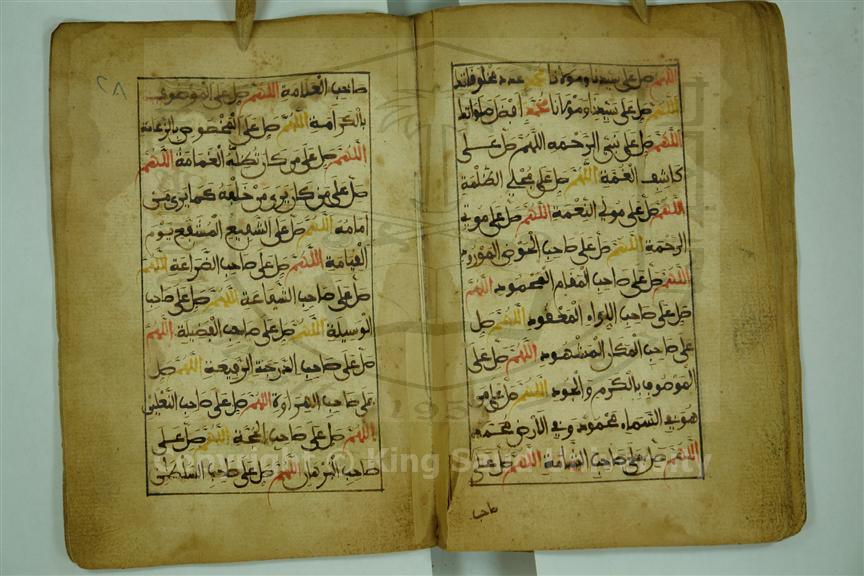 اللهم صل على سيدنا ومولانا محمد عدد مخلوقاتك
اللهم صل على سيدنا ومولانا محمد افضل صلواتك
اللهم صل على نبي الرحمه اللهم صل على
كاشف الغمة اللهم صل على مجلي الظلمة
اللهم صل على مولي النعمة اللهم صل على موتي
الرحمة اللهم صل على صاحب الحوض المورود
اللهم صل على صاحب المقام المحمود اللهم
صل على صاحب اللواء المعقود اللهم صل
على صاحب المكان المشهود اللهم صل على
الموصوف بالكرم والجود اللهم صل على من
هو في السماء محمود وفي الارض محمد
اللهم صل على صاحب الشامة اللهم صل على
صاحب
٢٨
صاحب العلامة اللهم صل على الموصوف
بالكرامة اللهم صل على المخصوص بالزعامة
اللهم صل على من كان تظله الغمامة اللهم
صل على من كان يرى من خلفه كما يرى من
امامه اللهم صل على الشفيع المشفع يوم
القيامة اللهم صل على صاحب الضراعة اللهم
صل على صاحب الشفاعة اللهم صل على صاحب
الوسيلة اللهم صل على صاحب الفضيلة اللهم
صل على صاحب الدرجة الرفيعة اللهم صل
على صاحب الهراوة اللهم صل على صاحب النعلين
اللهم صل على صاحب الحجة اللهم صل على
صاحب البرهان اللهم صل على صاحب السلطن
1957
Copyright © King Saud University